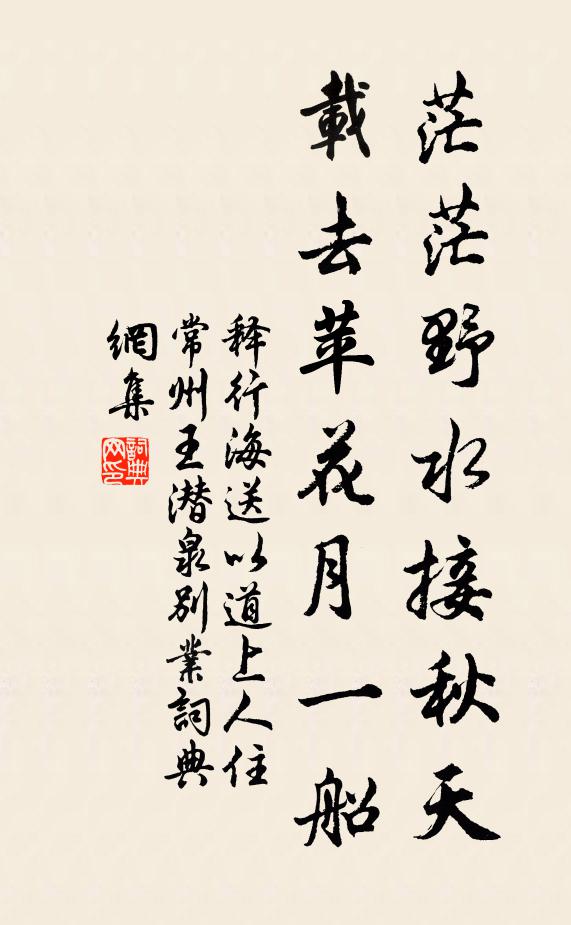 茫茫野水接秋天
載去苹花月一船
释行海送以道上人住
常州王潜泉别業詞典
網集
詞典网印